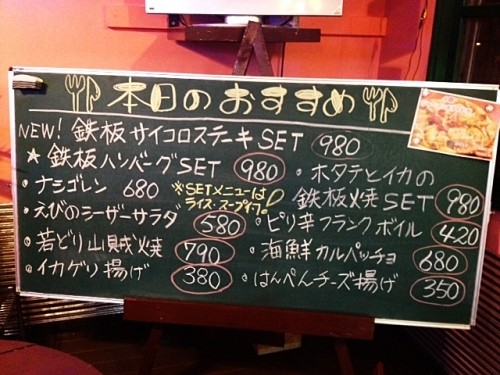 本日のおすすめ
NEW! 鉄板サイコロステーキSET 980
★ 鉄板ハンバーグSET 980
・ナシゴレン 680
※SETメニューは
ライス・スープ付。
・えびのシーザーサラダ 580
・若どり山賊焼 790
・イカゲソ揚げ 380
・ホタテとイカの
鉄板焼SET 980
・ピリ辛フランクボイル 420
・海鮮カルパッチョ 680
・はんぺんチーズ揚げ 350